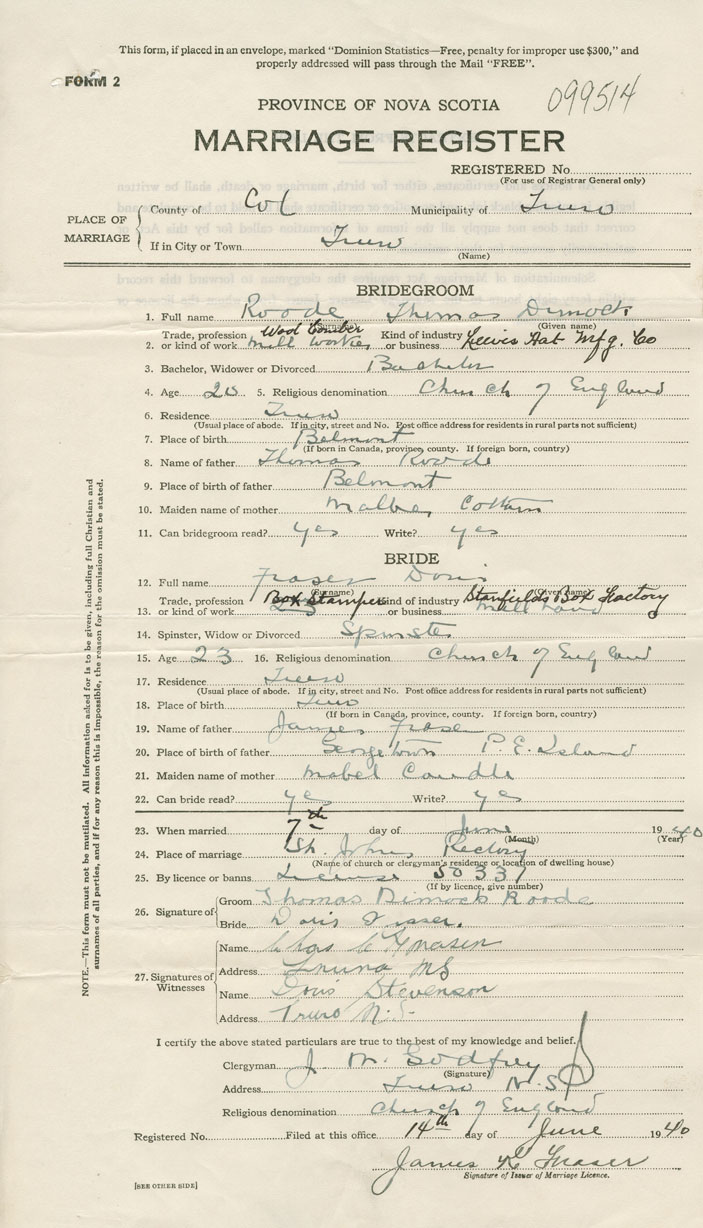 This form, if placed in an envelope, marked "Dominion Statistics—Free, penalty for improper use $300," and
properly addressed will pass through the Mail "FREE".
FORM 2
099514
PROVINCE OF NOVA SCOTIA
MARRIAGE REGISTER
REGISTERED No.
(For use of Registrar General only)
PLACE OF MARRIAGE
County of Col Municipality of Truro
If in City or Town Truro
(Name)
BRIDEGROOM
1. Full name Roode Thomas Dimock
(Surname) (Given name)
2. Trade, profession or kind of work Wool Comber Mill Worker Kind of industry or business Lewis Hat Mfg. Co
3. Bachelor, Widower or Divorced Bachelor
4. Age 20 5. Religious denomination Church of England
6. Residence Truro
(Usual place of abode. If in city, street and No. Post office address for residents in rural parts not sufficient)
7. Place of birth Belmont
(If born in Canada, province, county. If foreign born, country)
8. Name of father Thomas Roode
9. Place of birth of father Belmont
10. Maiden name of mother
11. Can bridegroom read? yes Write? yes
BRIDE
12. Full name Fraser Doris
(Surname) (Given name)
13. Trade, profession or kind of work Box Stamper Kind of industry or business Stanfields Box Factory
14. Spinster, Widow or Divorced Spinster
15. Age 23 16. Religious denomination Church of England
17. Residence Truro
(Usual place of abode. If in city, street and No. Post office address for residents in rural parts not sufficient)
18. Place of birth Truro
(If born in Canada, province, county. If foreign born, country)
19. Name of father James Fraser
20. Place of birth of father Georgetown P.E. Island
21. Maiden name of mother Mabel Caudle
22. Can bride read? yes Write? yes
23. When married 7th day of June 1940
(Month) (Year)
24. Place of marriage St. Johns Rectory
(Name of church or clergyman's residence or location of dwelling house)
25. By licence or banns License 50337
(If by licence, give number)
26. Signature of
Groom Thomas Dimock Roode
Bride Doris Fraser.
27. Signatures of Witnesses
Name Chas
Address Truro NS
Name Doris Stevenson
Address Truro N.S.
I certify the above stated particulars are true to the best of my knowledge and belief.
Clergyman J M Godfrey
(Signature)
Address Truro N.S.
Religious denomination Church of England
Registered No. Filed at this office 14th day of June 1940
James K Fraser
Signature of Issuer of Marriage Licence.
[SEE OTHER SIDE]
NOTE.—This form must not be mutilated. All information asked for is to be given, including full Christian and
surnames of all parties, and if for any reason this is impossible, the reason for the omission must be stated.